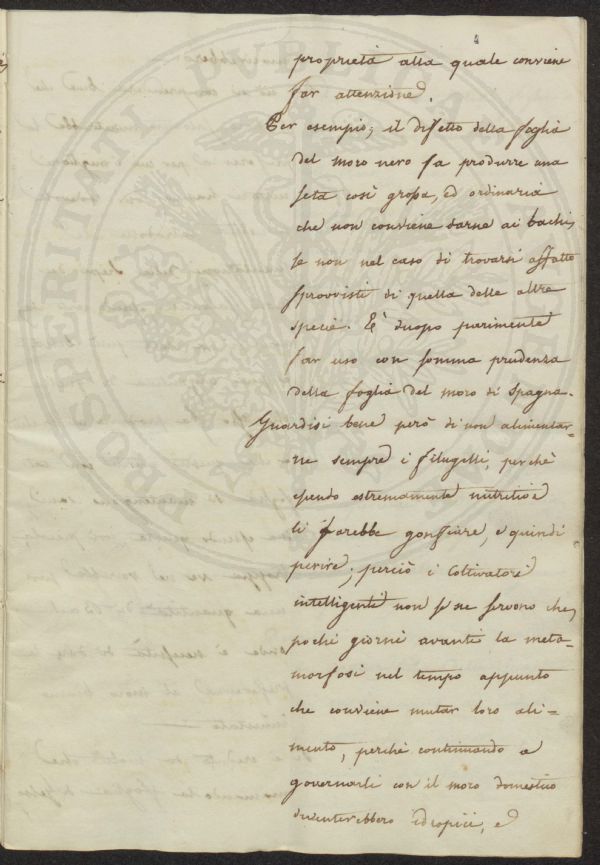 4
proprietà alla quale conviene
far attenzione.
Per esempio, il difetto della foglia
del moro nero fa produrre una
seta così grossa, ed ordinaria
che non conviene darne ai bachi,
se non nel caso di trovarsi affatto
sprovvisti di quella delle altre
specie. E' duopo parimente
far uso con somma prudenza
della foglia del moro di Spagna.
Guardisi bene però di non alimentar=
ne sempre i filugelli, perchè
essendo estremamente nutritive
li farebbe gonfiare, e quindi
perire; perciò i Coltivatori
intelligenti non se ne servono che,
pochi giorni avanti la meta=
morfosi nel tempo appunto
che conviene mutar loro ali=
mento, perchè continuando a
governarli con il moro domestico
diventerebbero idropici, e